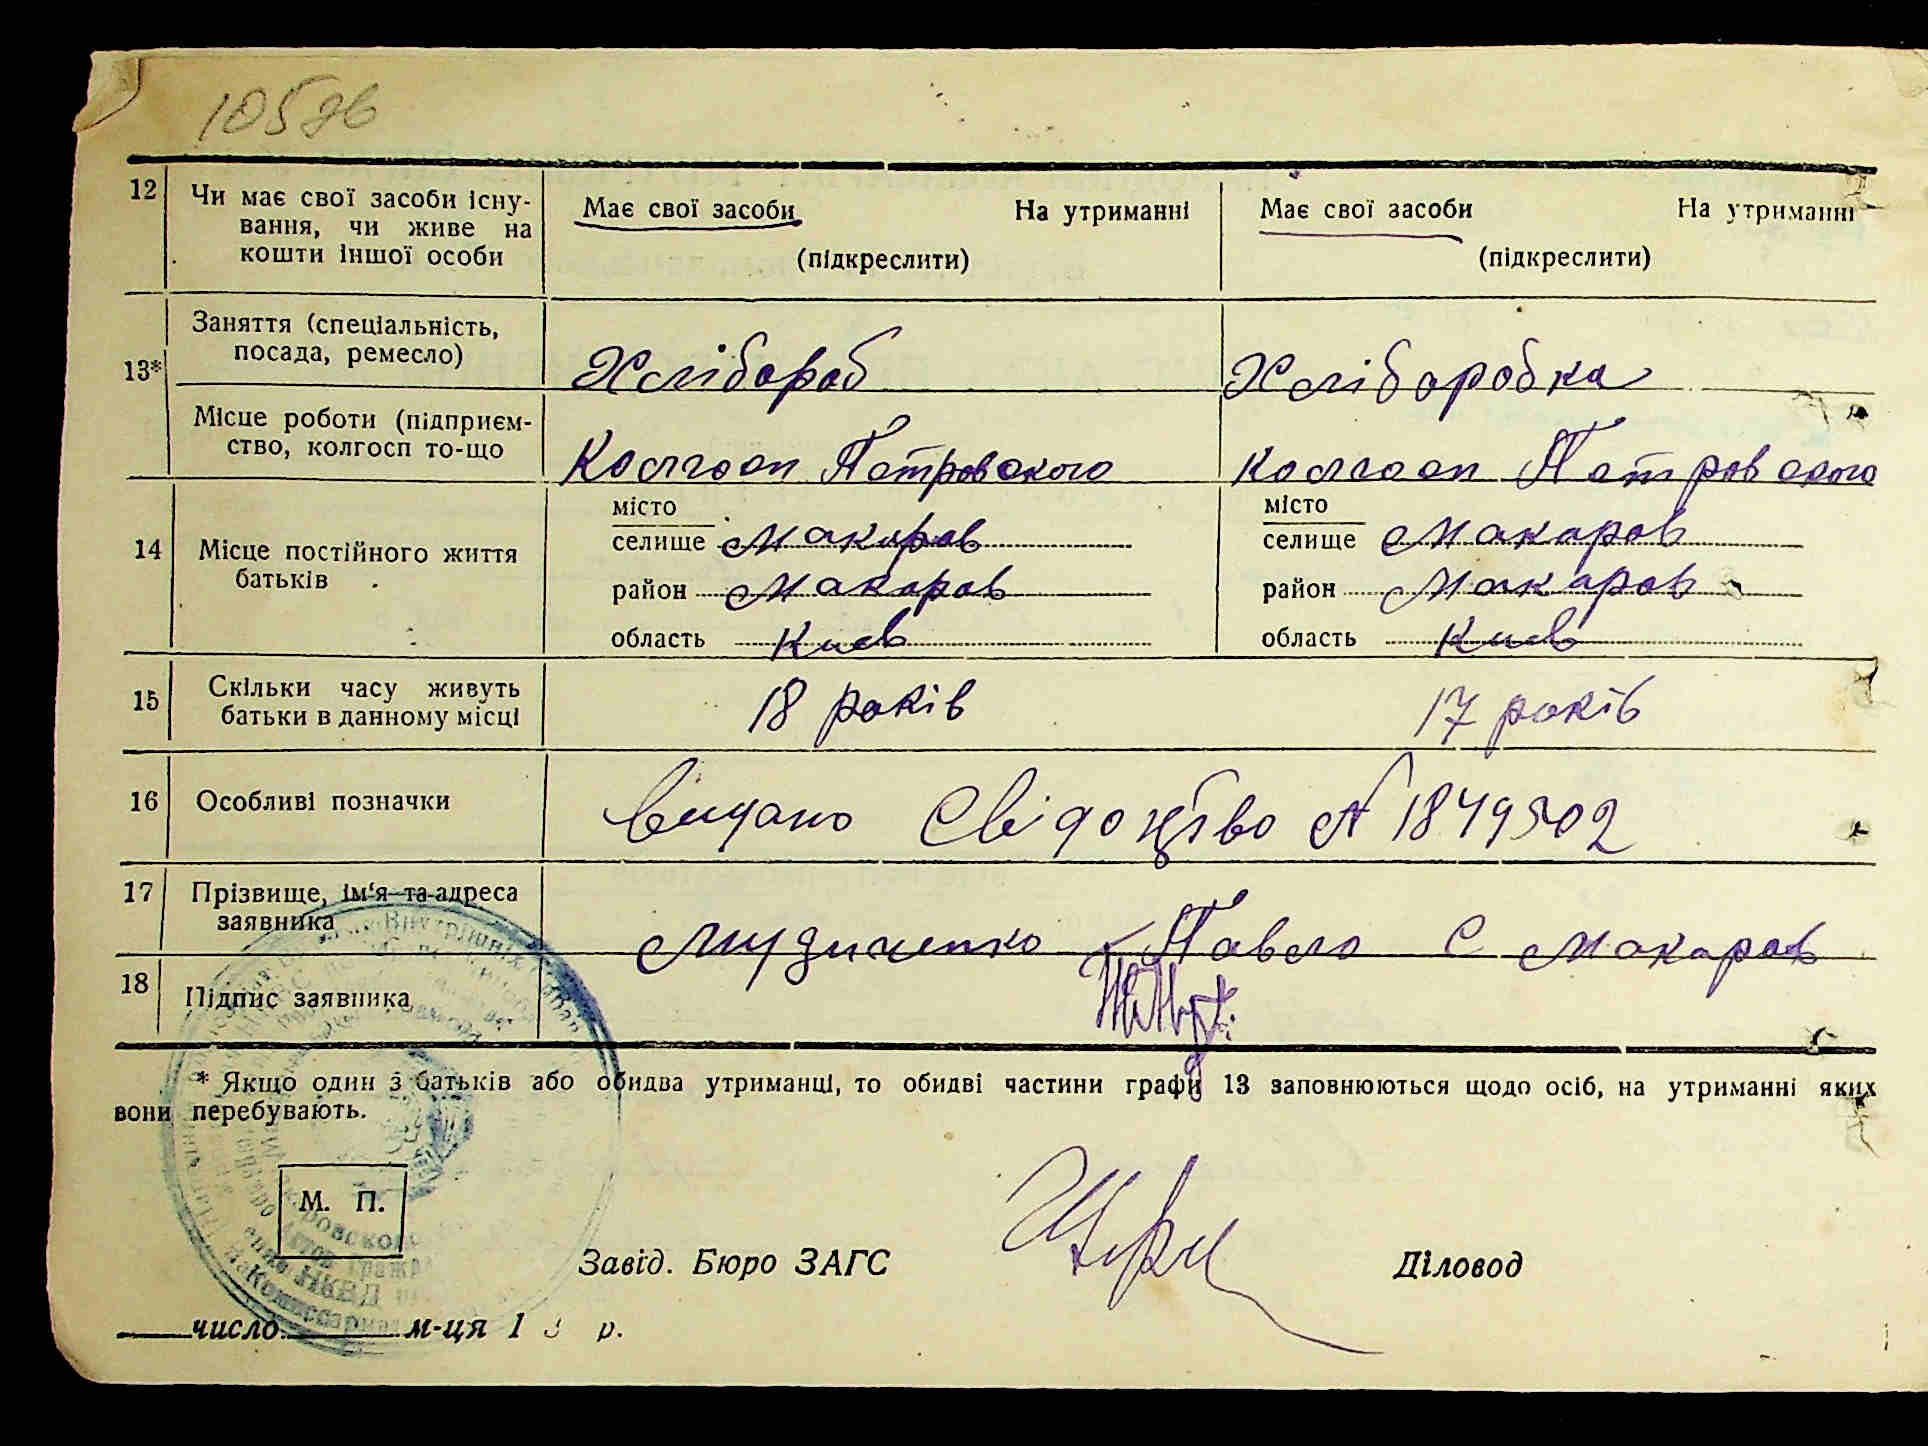 12 Чи має свої засоби існу-
вання, чи живе на
кошти іншої особи
Має свої засоби На утриманні
(підкреслити)
Має свої засоби На утриманні
(підкреслити)
13* Заняття (спеціальність,
посада, ремесло)
Хлібороб
Хліборобка
Місце роботи (підприєм-
ство, колгосп то-що
Колгосп Петровского
Колгосп Петровского
14 Місце постійного життя
батьків
місто
селище Макаров
район Макаров
область Киев
місто
селище Макаров
район Макаров
область Киев
15 Скільки часу живуть
батьки в данному місці
18 років
17 років
16 Особливі позначки
Видано Свідоцтво № 1849502
17 Прізвище, ім‘я та адреса
заявника
Павло С Макаров
18 Підпис заявника
* Якщо один з батьків або обидва утриманці, то обидві частини графи 13 заповнюються щодо осіб, на утриманні яких
вони перебувають.
М. П.
Завід. Бюро ЗАГС Діловод
число м-ця 1 3 р.